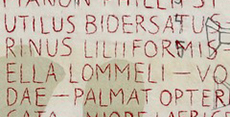 UTILUS BIDERSATUS –
RINUS LILIIFORMIS
ELLA LOMMELI – VO
DAE – PALMAT OPTER